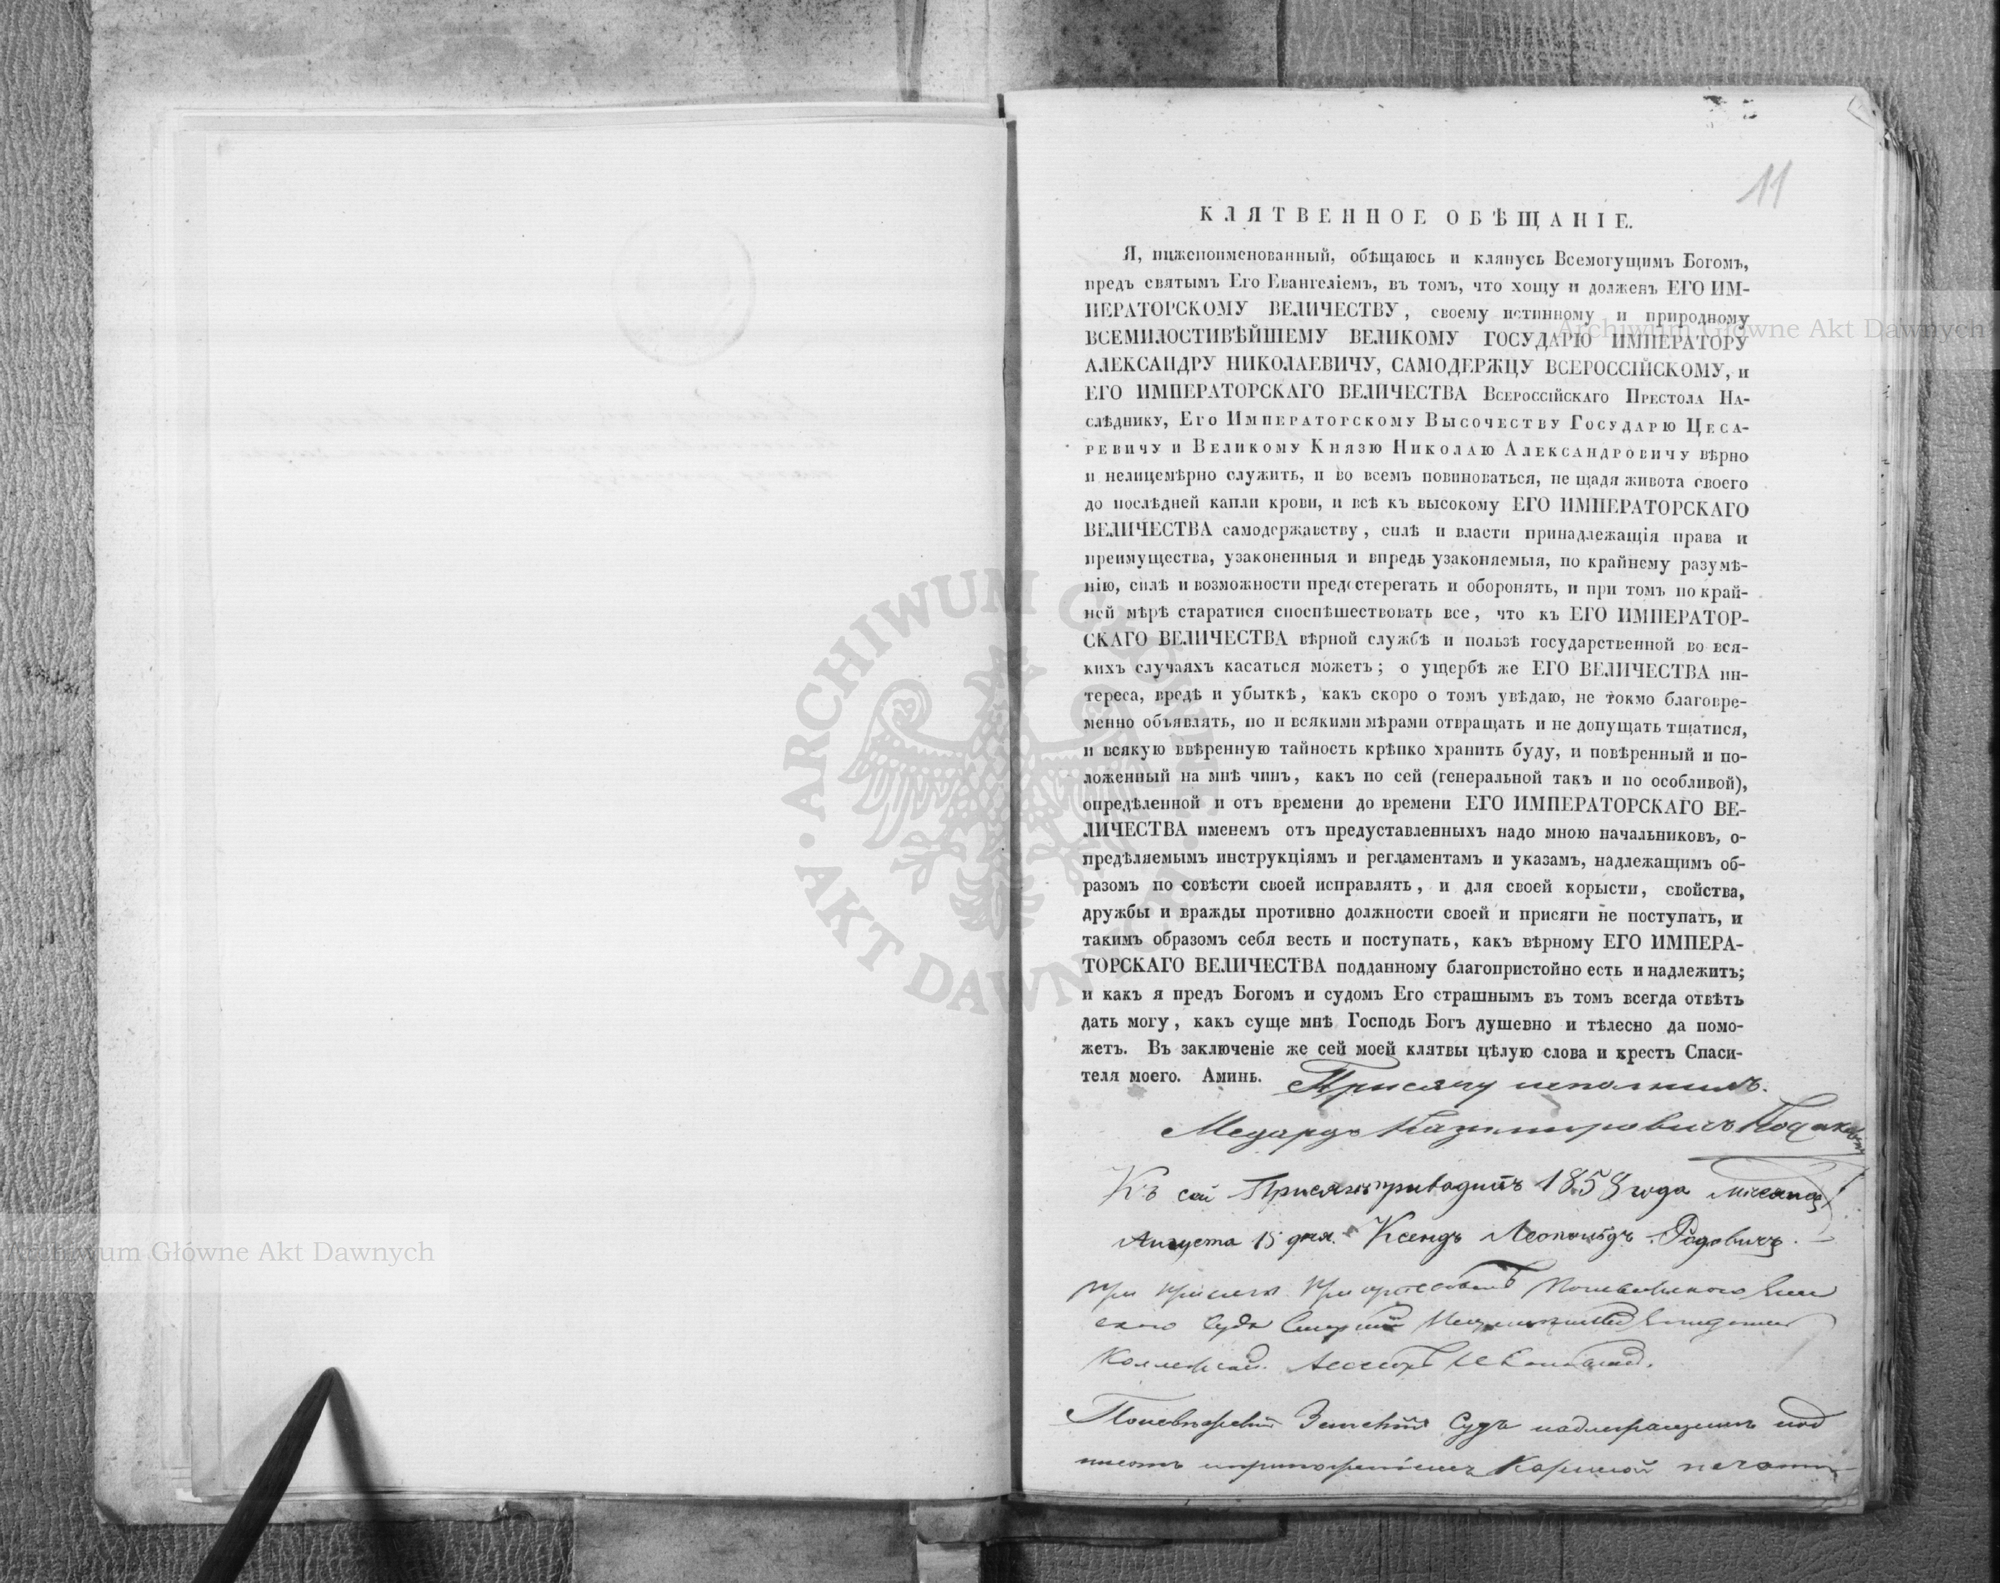 11
КЛЯТВЕННОЕ ОБѢЩАНІЕ.
Я, нижепоименованный, обѣщаюсь и клянусь Всемогущимъ Богомъ,
предъ святымъ Его Евангеліемъ, въ томъ, что хощу и долженъ ЕГО ИМ-
ПЕРАТОРСКОМУ ВЕЛИЧЕСТВУ, своему истинному и природному
ВСЕМИЛОСТИВѢЙШЕМУ ВЕЛИКОМУ ГОСУДАРЮ ИМПЕРАТОРУ
АЛЕКСАНДРУ НИКОЛАЕВИЧУ, САМОДЕРЖЦУ ВСЕРОССІЙСКОМУ, и
ЕГО ИМПЕРАТОРСКАГО ВЕЛИЧЕСТВА Всероссійскаго Престола На-
слѣднику, Его Императорскому Высочеству Государю Цеса-
ревичу и Великому Князю Николаю Александровичу вѣрно
и нелицемѣрно служить, и во всемъ повиноваться, не щадя живота своего
до послѣдней капли крови, и всѣ къ высокому ЕГО ИМПЕРАТОРСКАГО
ВЕЛИЧЕСТВА самодержавству, силѣ и власти принадлежащія права и
преимущества, узаконенныя и впредь узаконяемыя, по крайнему разумѣ-
нію, силѣ и возможности предостерегать и оборонять, и при томъ по край-
ней мѣрѣ старатися споспѣшествовать все, что къ ЕГО ИМПЕРАТОР-
СКАГО ВЕЛИЧЕСТВА вѣрной службѣ и пользѣ государственной во вся-
кихъ случаяхъ касаться можетъ; о ущербѣ же ЕГО ВЕЛИЧЕСТВА ин-
тереса, вредѣ и убыткѣ, какъ скоро о томъ увѣдаю, не токмо благовре-
менно объявлять, но и всякими мѣрами отвращать и не допущать тщатися,
и всякую ввѣренную тайность крѣпко хранить буду, и повѣренный и по-
ложенный на мнѣ чинъ, какъ по сей (генеральной такъ и по особливой),
опредѣленной и отъ времени до времени ЕГО ИМПЕРАТОРСКАГО ВЕ-
ЛИЧЕСТВА именемъ отъ предуставленныхъ надо мною начальниковъ, о-
предѣляемымъ инструкціямъ и регламентамъ и указамъ, надлежащимъ об-
разомъ по совѣсти своей исправлять, и для своей корысти, свойства,
дружбы и вражды противно должности своей и присяги не поступать, и
такимъ образомъ себя весть и поступать, какъ вѣрному ЕГО ИМПЕРА-
ТОРСКАГО ВЕЛИЧЕСТВА подданному благопристойно есть и надлежитъ;
и какъ я предъ Богомъ и судомъ Его страшнымъ въ томъ всегда отвѣтъ
дать могу, какъ суще мнѣ Господь Богъ душевно и тѣлесно да помо-
жетъ. Въ заключеніе же сей моей клятвы цѣлую слова и крестъ Спаси-
теля моего. Аминь. Присягу исполнилъ.
Медардъ Казимировичъ
Къ сей Присягѣ приводилъ 1858 года мѣсяца
Августа 15 дня. Ксендъ Леопольдъ
при присягѣ
Суда
Ассесоръ
Земскій Судъ надлежащимъ под
писомъ и приложеніемъ Казенной печати
ARCHIWUM GŁÓWNE · AKT DAWNYCH ·
Archiwum Główne Akt Dawnych
Archiwum Główne Akt Dawnych